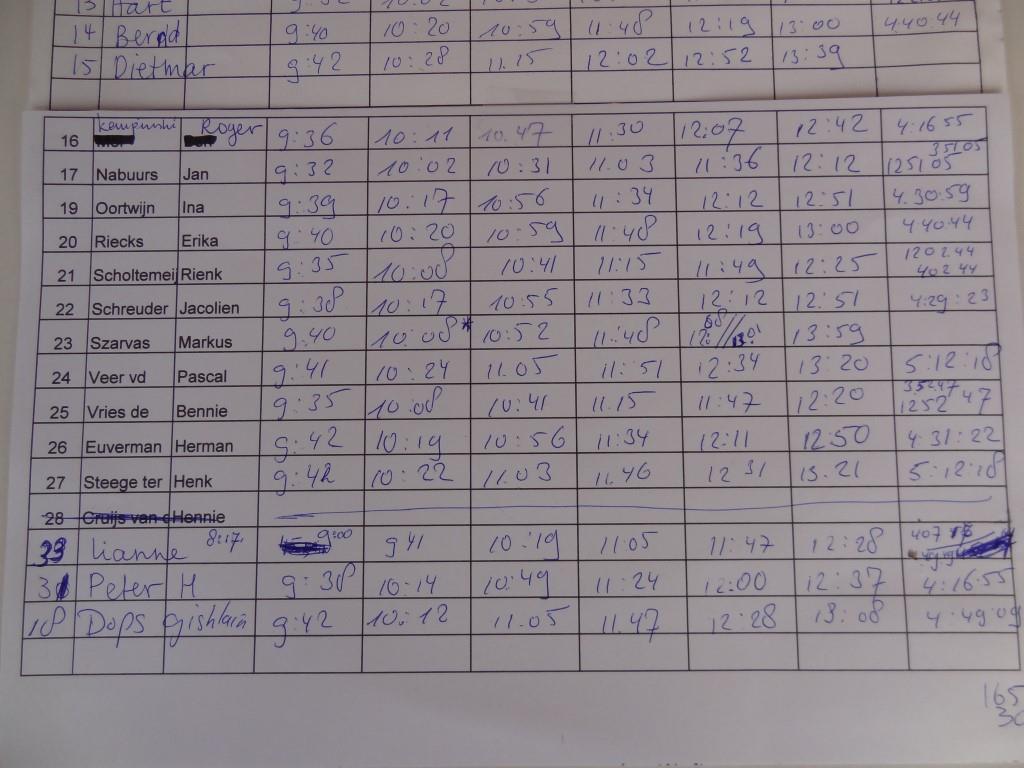 13 Hart 9:32 10:02
14 Bernd 9:40 10:20 10:59 11:48 12:19 13:00 4.40.44
15 Dietmar 9:42 10:28 11.15 12:02 12:52 13:39
16 Kempinski Roger 9:36 10:11 10.47 11:30 12:07 12:42 4:16 55
35105
17 Nabuurs Jan 9:32 10:02 10:31 11.03 11:36 12:12 125105
19 Oortwijn Ina 9:39 10:17 10:56 11:34 12:12 12:51 4.30:59
20 Riecks Erika 9:40 10:20 10:59 11:48 12:19 13:00 44044
21 Scholtemeij Rienk 9:35 10:08 10:41 11:15 11:49 12:25 120244
40244
22 Schreuder Jacolien 9:38 10:17 10:55 11:33 12:12 12:51 4:29:23
23 Szarvas Markus 9:40 10:08* 10:52 11:48 13:59
24 Veer vd Pascal 9:41 10:24 11.05 11:51 12:34 13:20 5:12:18
35247
25 Vries de Bennie 9:35 10:08 10:41 11.15 11:47 12:20 1252 47
26 Euverman Herman 9:42 10:19 10:56 11:34 12:11 12:50 4:31:22
27 Steege ter Henk 9:42 10:22 11.03 11.46 12 31 13.21 5:12:18
28 Cruijs van d Hennie
33 Lianne 8:17. 9:00 941 10:19 11:05 11:47 12:28 407
31 Peter H 9:38 10:14 10:49 11:24 12:00 12:37 4:16:55
18 Dops gishlain 9:42 10:12 11.05 11.47 12:28 13:08 4:49:09
165
30